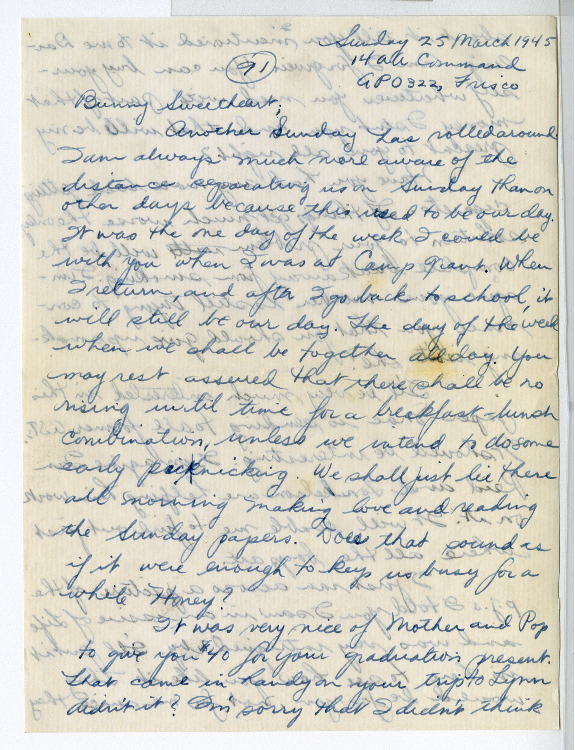 Sunday 25 March 1945
91
14 AU Command
APO 322, Frisco
Bunny Sweetheart;
Another Sunday has rolled around
I am always much more aware of the
distance separating us on Sunday than on
other days because this used to be our day.
It was the one day of the week I could be
with you when I was at Camp Grant. When
I return, and after I go back to school, it
will still be our day. The day of the week
when we shall be together all day. You
may rest assured that there shall be no
rising until time for a breakfast-lunch
combination, unless we intend to do some
early picknicking. We shall just lie there
all morning making love and reading
the Sunday papers. Does that sound as
if it were enough to keep us busy for a
while Honey?
It was very nice of Mother and Pop
to give you $40 for your graduation present.
That came in handy on your trip to Lynn
didn't it? I'm sorry that I didn't think